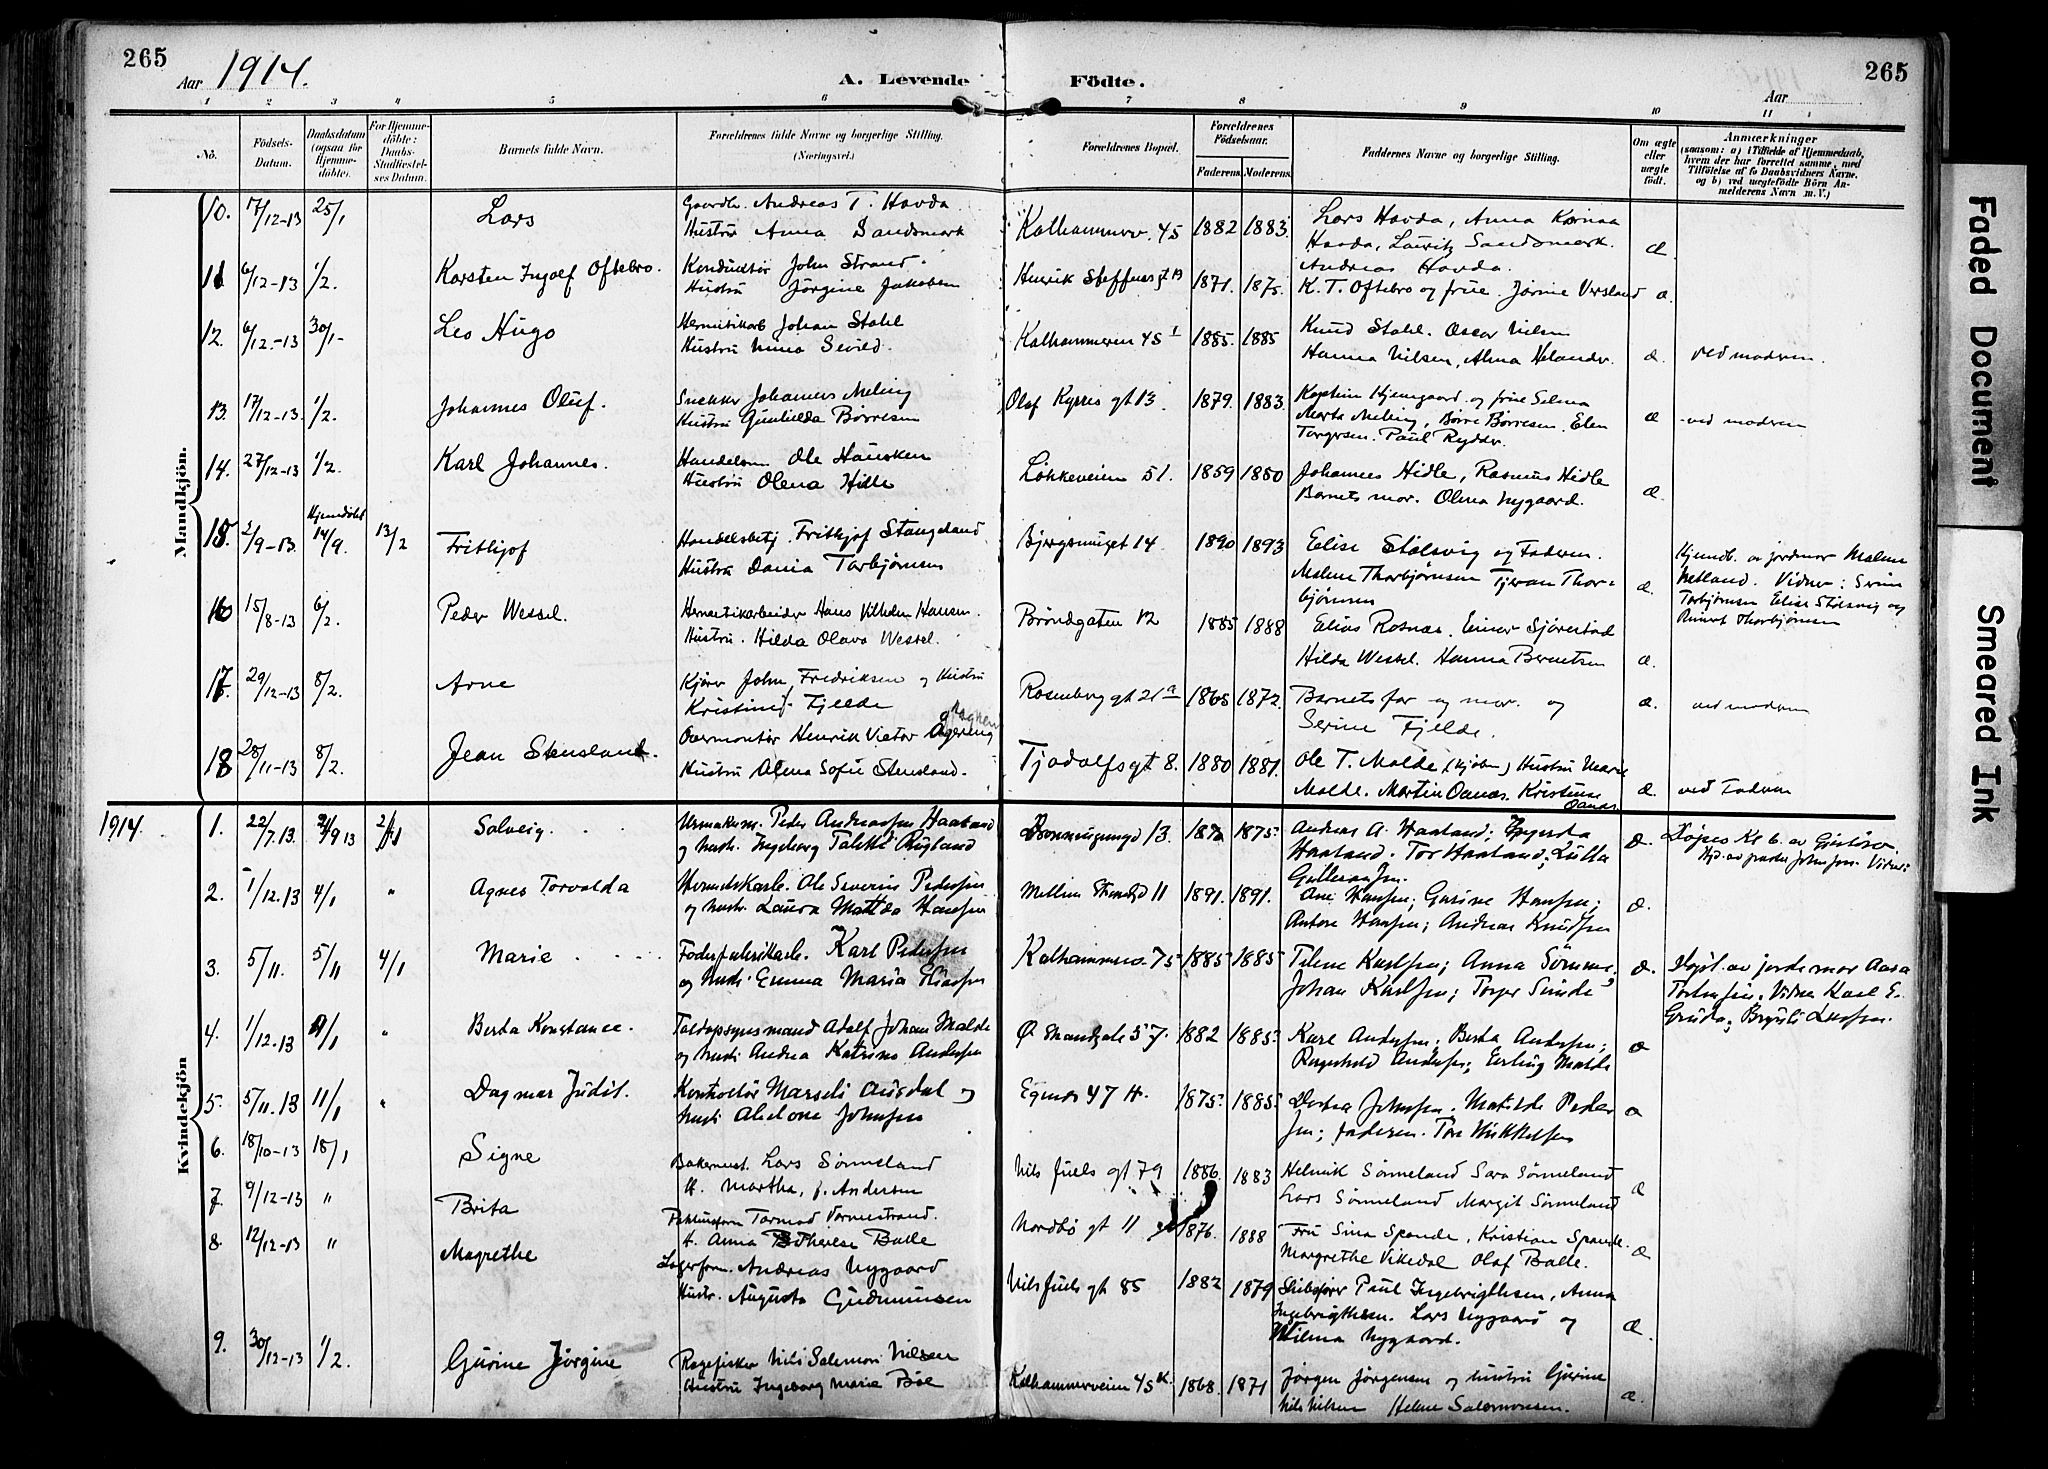 265
Aar 1914.
A. Levende Födte.
265
Aar
1 2 3 4 5 6 7 8 9 10 11
No.
Födsels-Datum.
Daabsdatum (ogsaa for Hjemmedöbte).
For Hjemmedöbte: Daabs-Stadfæstelses Datum.
Barnets fulde Navn.
Forældrenes fulde Navne og borgerlige Stilling. (Næringsvei.)
Forældrenes Bopæl.
Forældrenes Födselsaar.
Faderens. Moderens.
Faddernes Navne og borgerlige Stilling.
Om ægte eller uægte födt.
Anmærkninger
(saasom: a) i Tilfælde af Hjemmedaab, hvem der har forrettet samme, med Tilföielse af to Daabsvidners Navne. og b) ved uægtefödte Börn Anmelderens Navn m. V.)
Mandkjön.
10. 17/12-13 25/1 Lars
Gaardbr. Andreas T. Havda
Hustru Anna Sandsmark
Kalhammerv. 45 1882 1883
Lars Havda, Anna
Havda, Lauritz Sandsmark.
Andreas Havda.
æ.
11 6/12-13 1/2. Karsten Ingolf Oftebro.
Konduktör John Strand.
Hustru Jörgine Jakobsen
Henrik Steffensgt 1871. 1875.
K. T. Oftebro og frue. Jörine Versland
æ.
12. 6/12.-13 30/1- Leo Hugo
Johan Stahl
Hustru Nina
Kalhammerven 45 1885. 1885
Knud Stahl. Oscar Nilsen
Hanna Nilsen, Alma
æ. ved moderen.
13. 17/12-13. 1/2. Johannes Oluf.
Snekker Johannes Meling
Hustru Gunhilda Börresen
Olaf Kyrres gt 13. 1879. 1883.
Kaptein og frue Selma
Marta Meling, Börre Börresen. Elen
Torgersen. Paul Rydder.
æ -ved moderen
14. 27/12-13 1/2. Karl Johannes.
Handelsm Ole Hausken
Hustru Olena Hidle
Lökkeveien 51. 1859 1880
Johannes Hidle, Rasmus Hidle
Barnets mor. Olena Nygaard.
æ.
15. 2/9-13. Hjemdöbt 14/9. 13/2 Frithjof
Handelsbetj. Frithjof Stangeland
Hustru Dania Torbjörnsen
Bjergsmuget 14 1890 1893
Elise Stølsvig og Faderen.
Malene Thorbjörnsen Tjeran Thor-
björnsen
æ.
Hjemdb. av jordmor Malene
Netland. Vidner: Serine
Torbjörnsen Elise Stölsvig og
Thorbjörnsen
16 15/8-13 6/2. Peder Wessel.
Hermetikarbeider Hans Vilhelm Hansen.
Hustru. Hilda Olava Wessel.
Bröndgaten 12 1885 1888
Elias Rosnæs. Einar Sjövestad
Hilda Wessel. Hanna Berntsen
æ.
17. 29/12-13 8/2. Arne
Kjörer John Fredriksen og Hustru
Kristine f. Fjelde
Rosenberg gt 21 a 1865 1872.
Barnets far og mor. og
Serine Fjelde.
æ. ved moderen
18 28/11-13 8/2. Jean Stensland.
Overmontör Henrik Victor
Hustru Olena Sofie Stensland.
Tjodolfsgt 8. 1880 1881.
Ole T. Malde (kjöbm) Hustru Marie
Malde. Martin Oanæs. Kristine
Oanæs
æ. ved Faderen
1914.
Kvindekjön
1. 22/7.13 13 Solveig. . .
Urmakerm. Peder Andreassen Haaland
og hust. Ingeborg Talette Rugland
Dronningensgd 13. 1875
Andreas A. Haaland;
Haaland. Tor Haaland; Lulla
Gullersen.
æ.
Döpes Kl 6. av
Hjd. av Vidner:
2. 1/12.13 4/1 " Agnes Torvalda
Ole Severin Pedersen
og hust. Laura Matilda Hansen
Mellem Strandgd 11 1891. 1891.
Ane Hansen; Gurine Hansen;
Antone Hansen; Andreas Knudsen
æ.
3. 5/11. 5/11 4/1 Marie . . . .
Karl Pedersen
og hust. Emma Maria Eliassen
Kalhammerv. 75 1885 1885
Tilene Karlsen; Anna Sömme;
Johan Karlsen; Torger Sunde
æ.
Döpt. av jordemor Aasa
Torkelsen. Vidner Karl E.
4. 1/12.13 4/1 " Berta Konstance.
Toldopsynsmand Adolf Johan Malde
og hust. Andrea Katrine Andersen
Ø Strandgate 57. 1882 1885
Karl Andersen; Berta Andersen;
Ragnhild Andersen; Erling Malde
æ
5. 5/11.13 11/1 " Dagmar Judit.
Kontrolør Marseli Ausdal og
hust. Abelone Johnsen
Egenæs 47 H. 1875. 1885
Dorthea Johnsen. Matilde Peder
sen; faderen. Tora Mikkelsen
æ
6. 18/10-13 18/1 Signe
Bakermest. Lars Sönneland
H. Martha, f. Andersen
Nils Juels gt 79 1886. 1883
Helmik Sönneland Sara Sönneland
Lars Sönneland Margit Sönneland
æ
7. 9/12-13 " Brita
Tormod Vormestrand.
H. Anna Therese Balle
Nordbö gt 11 1876. 1888
Fru Sina Spande, Kristian Spande.
Margrethe Vikedal Olaf Balle.
æ
8 12/12-13 " Magrethe
Lagerform. Andreas Nygaard
Hustr. Augusta Gudmunsen
Nils Juels gt 85 1882 1879
Skibsförer Paul Ingebrigthsen, Anna
Ingebrigthsen. Lars Nygaard og
Wilma Nygaard.
æ.
9. 30/12-13 1/2. Gurine Jörgine
Nils Salemon Nilsen
Hustru Ingeborg Marie Böe
Kalhammerveien 45 1868. 1871
Jörgen Jörgensen og hustru Gurine
Nils Nilsen Helene Salomonsen.
æ.
Faded Document
Smeared Ink